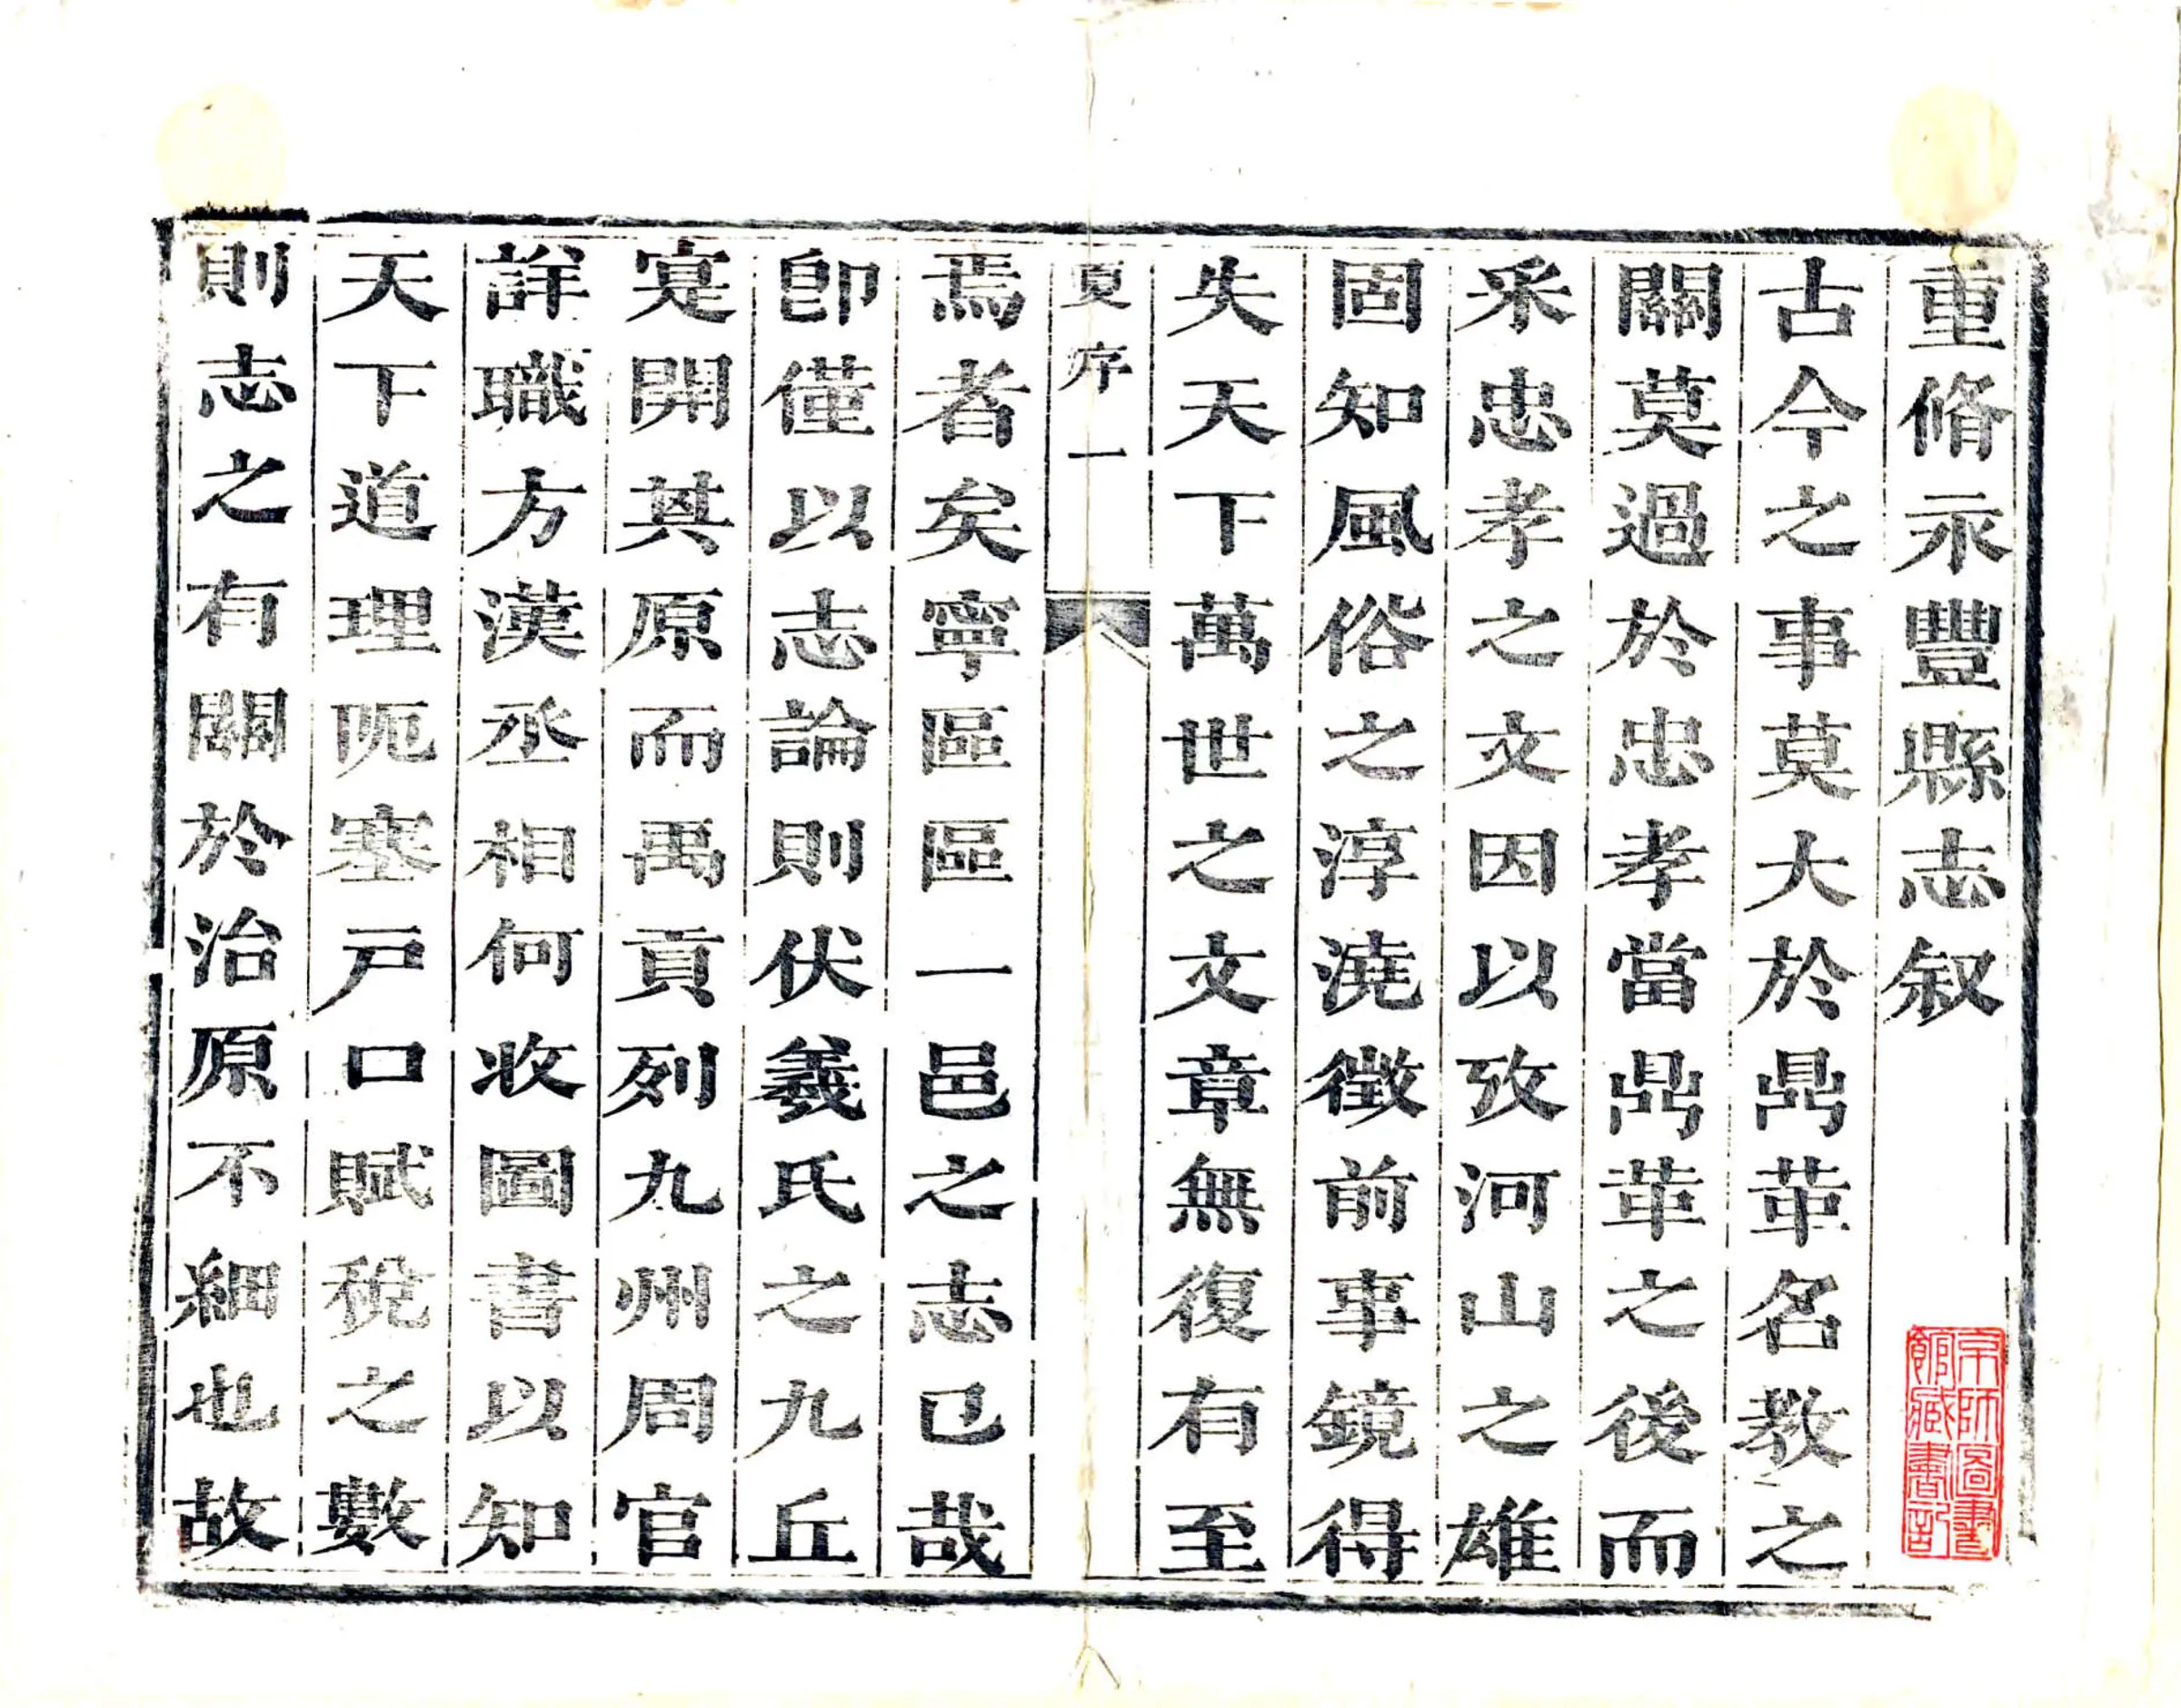 重脩永豐縣志叙
古今之事莫大於鼎革名教之
關莫過於忠孝當鼎革之後而
采忠孝之文因以攷河山之雄
固知風俗之淳澆徵前事鏡得
失天下萬世之文章無復有至
夏序 一
焉者矣寧區區一邑之志已哉
卽僅以志論則伏羲氏之九丘
寔開其原而禹貢列九州周官
詳職方漢丞相何收圖書以知
天下道理阨塞戸口賦稅之數
則志之有關於治原不細也故
京師圖書
館藏書記